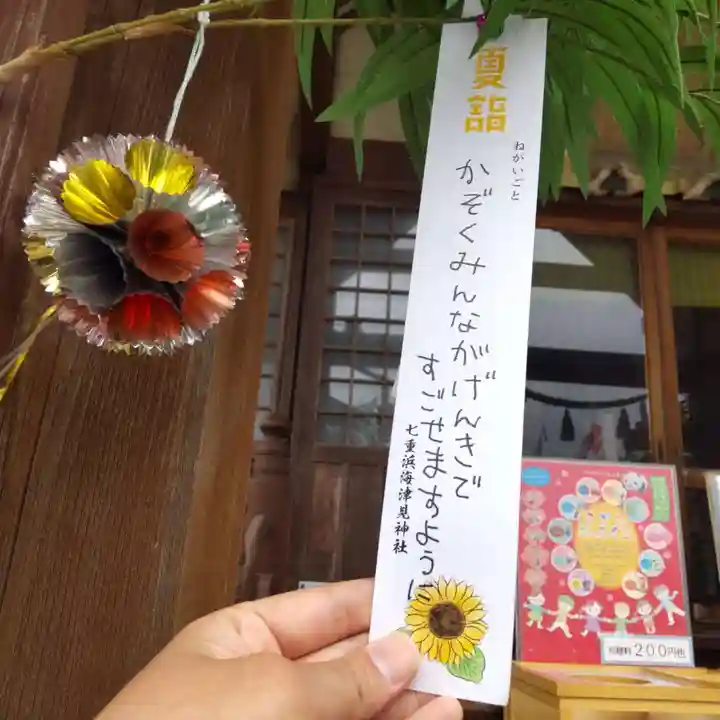 夏詣
ねがいごと
かぞくみんながげんきで
すごせますように
七重浜海津見神社
200円